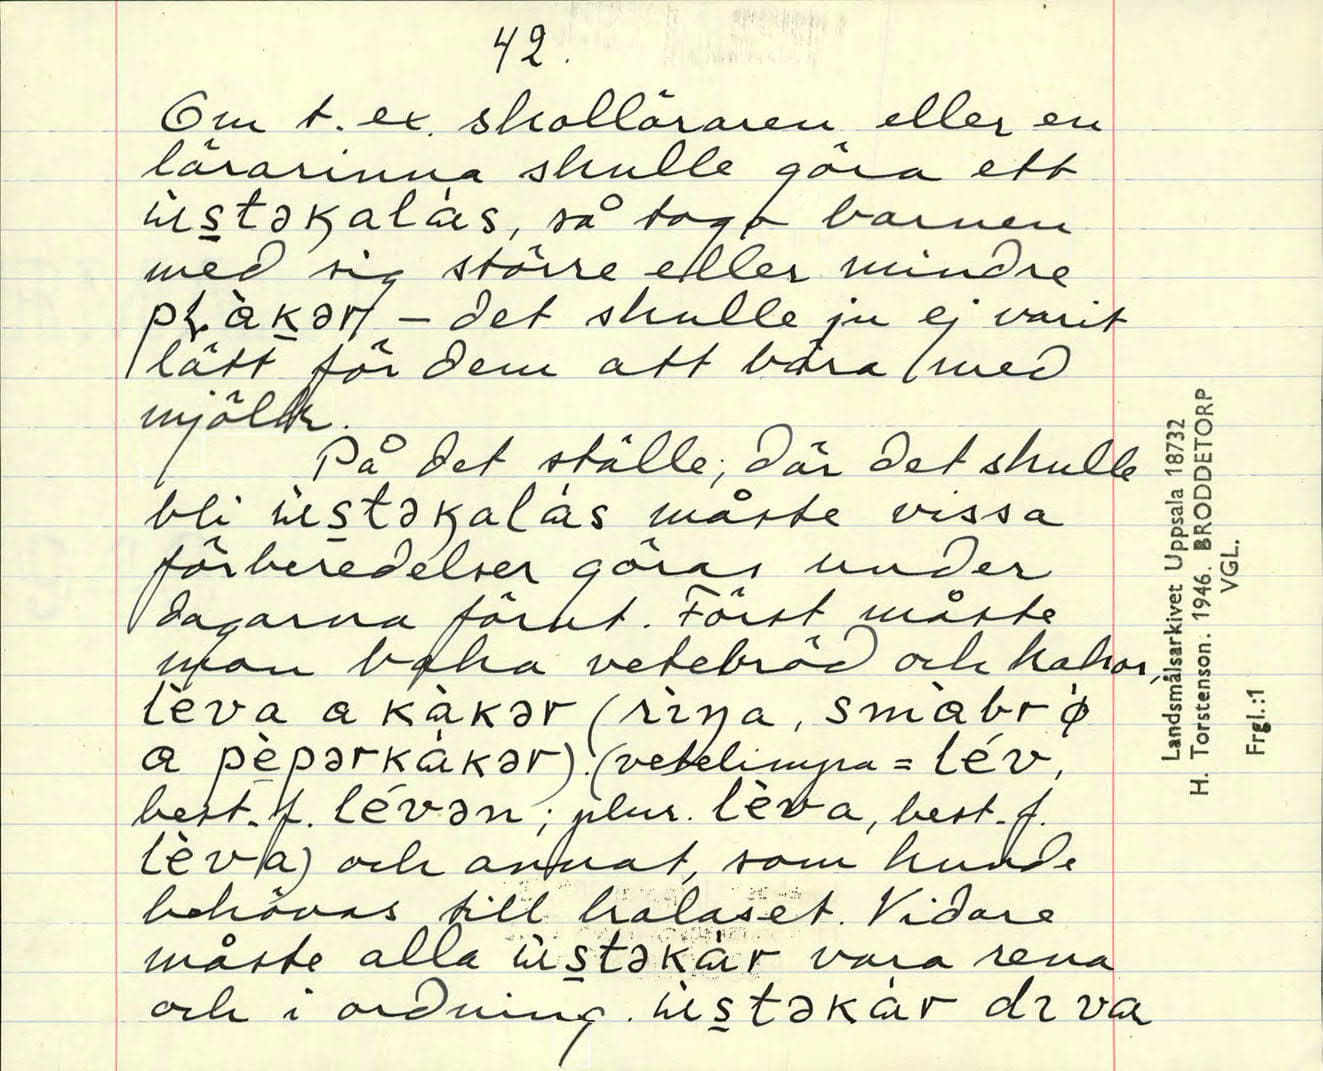 42.
Om t. ex. skolläraren eller en
lärarinna skulle göra ett
ùs̲təkalás, så togo barnen
med sig större eller mindre
pḷàk̲ər – det skulle ju ej varit
lätt för dem att bära med
mjölk.
På det ställe, där det skulle
bli ùs̲təkalás måste vissa
förberedelser göras under
dagarna förut. Först måste
man baka vetebröd och kakor,
lèva a kàkər (rìŋa, smàbrø̇
a pè̲pərkàkər). (vetelimpa = lév,
best. f. lévən; plur. lèva, best. f.
lèva) och annat, som kunde
behövas till kalaset. Vidare
måste alla ùs̲təkár vara rena
och i ordning. ùs̲təkár dɪ va
Landsmålsarkivet Uppsala 18732
H. Torstenson. 1946. BRODDETORP
VGL.
Frgl.:1